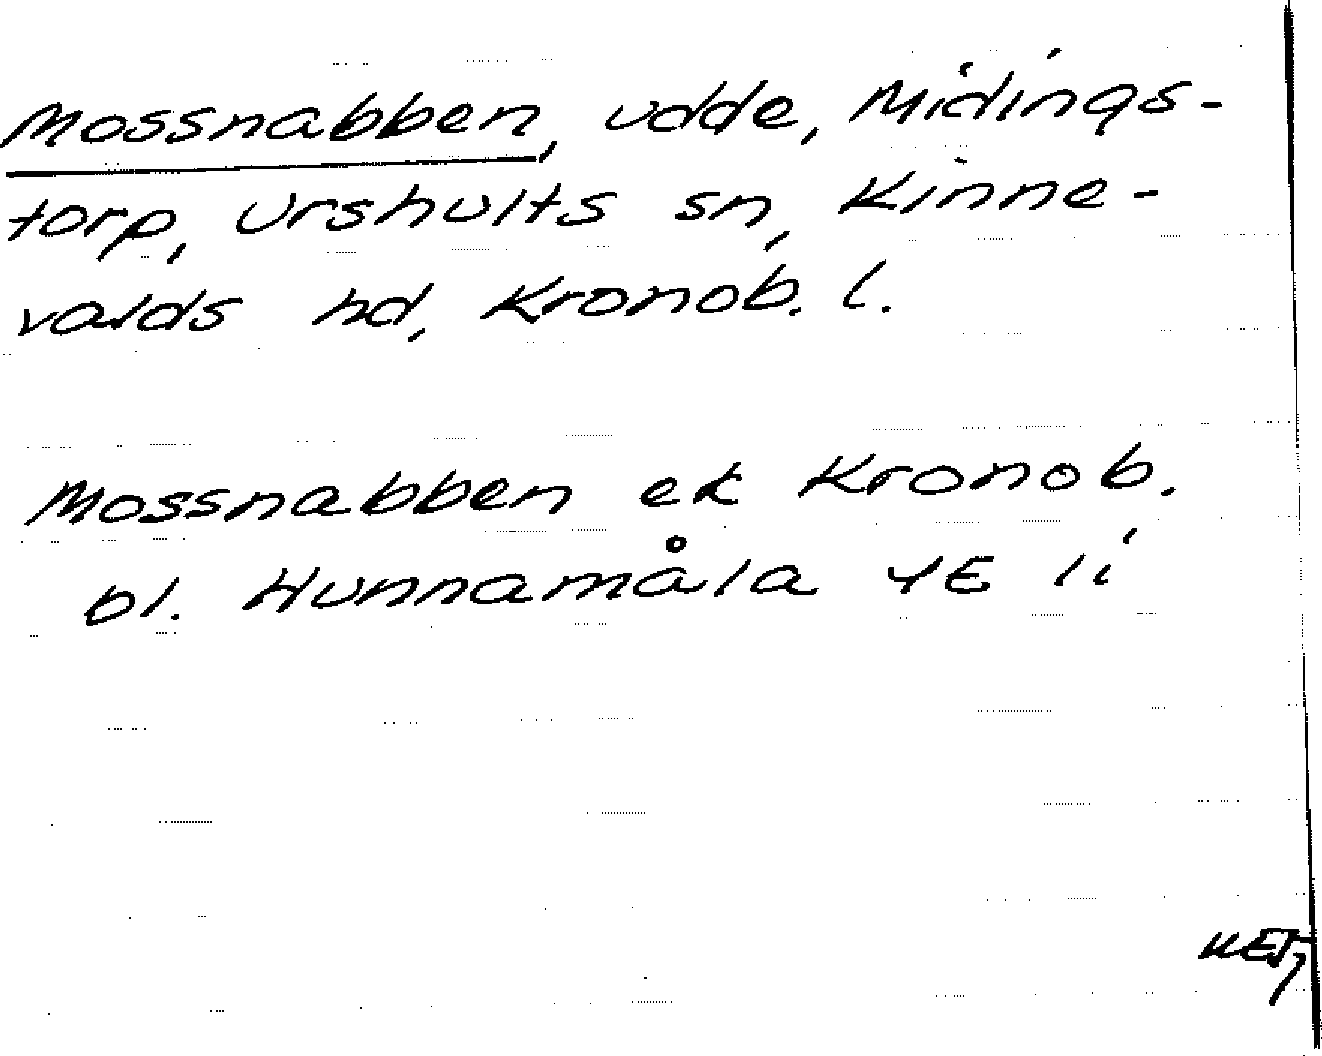 Mossnabben, udde, Midings-
torp, Urshults sn, Kinne-
valds hd, Kronob. l.
Mossnabben ek Kronob.
bl. Hunnamåla 4E 1i